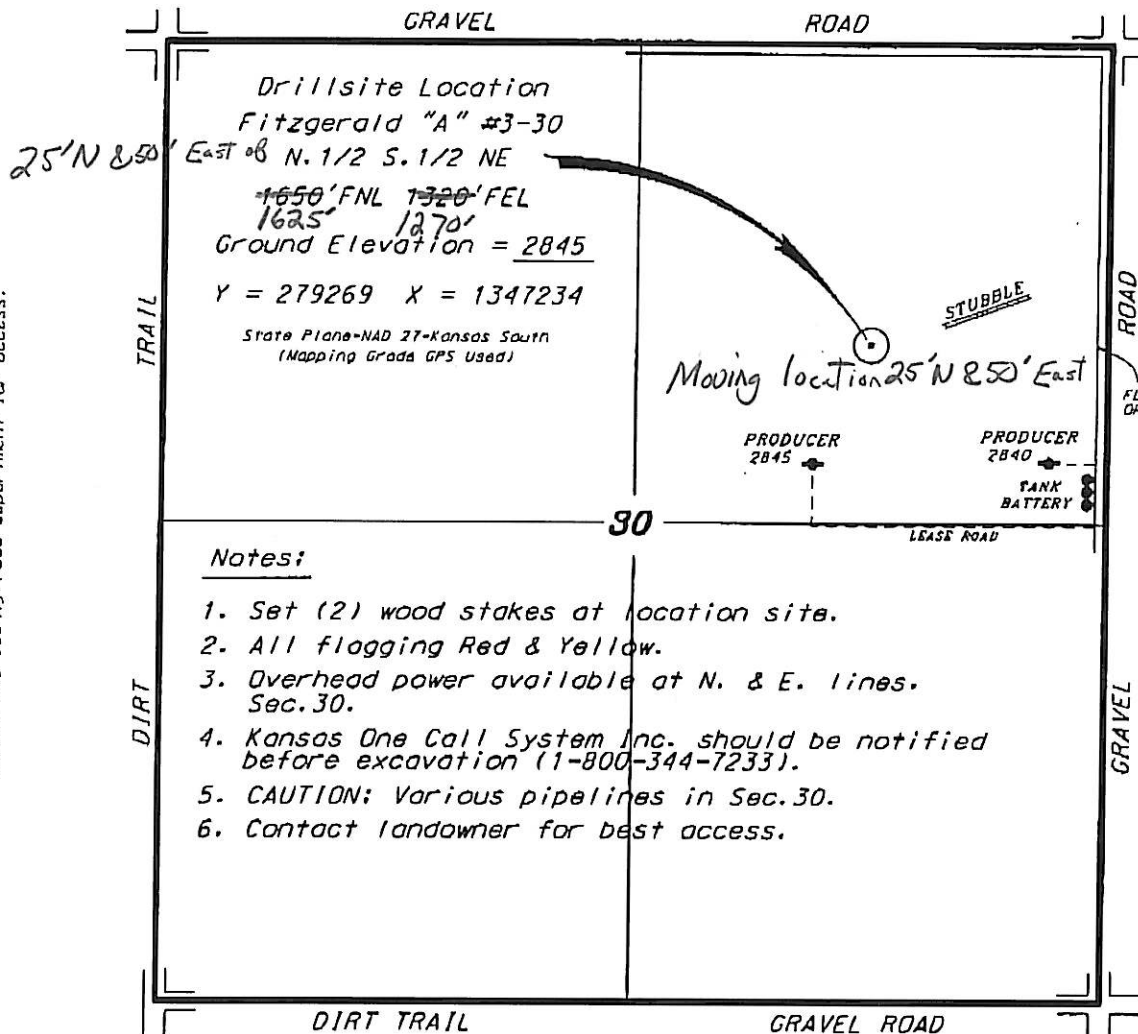 GRAVEL ROAD
Drillsite Location
Fitzgerald "A" #3-30
25'N & 50' East of N. 1/2 S. 1/2 NE
1650' FNL 1320' FEL
1625' 1270'
Ground Elevation = 2845
Y = 279269 X = 1347234
State Plane-NAD 27-Kansas South
(Mapping Grade GPS Used)
TRAIL
STUBBLE
ROAD
Moving location 25'N & 50' East
PRODUCER
2845
PRODUCER
2840
TANK
BATTERY
30
LEASE ROAD
Notes:
1. Set (2) wood stakes at location site.
2. All flagging Red & Yellow.
3. Overhead power available at N. & E. lines.
Sec.30.
4. Kansas One Call System Inc. should be notified
before excavation (1-800-344-7233).
5. CAUTION: Various pipelines in Sec.30.
6. Contact landowner for best access.
DIRT
GRAVEL
DIRT TRAIL GRAVEL ROAD